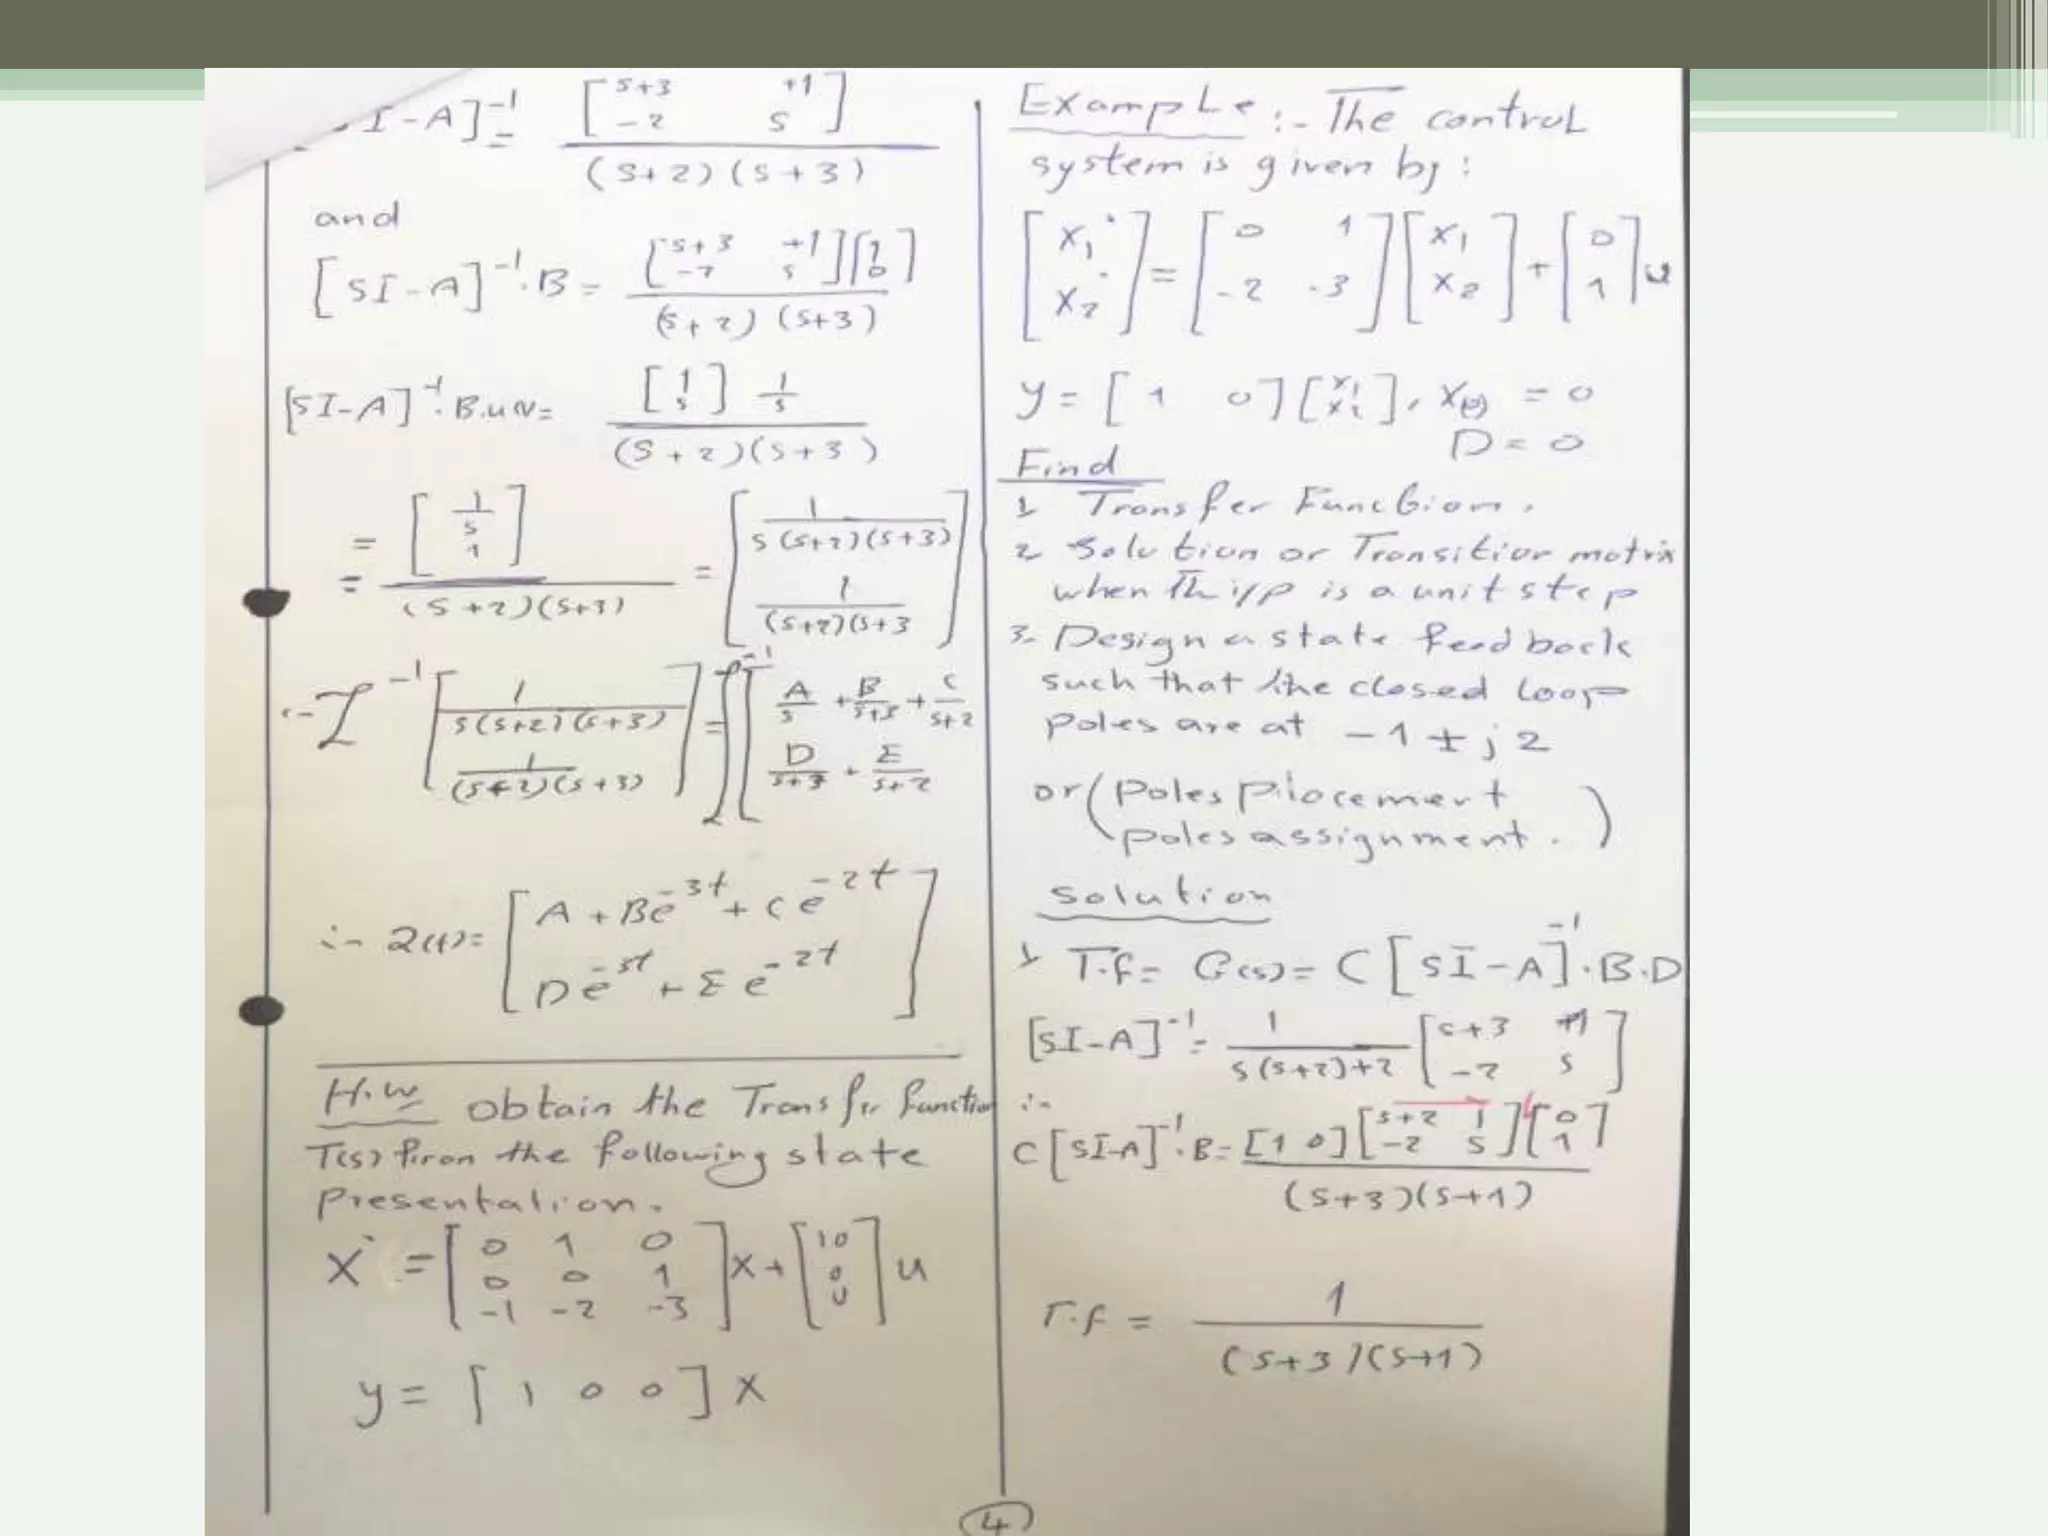 I-A]⁻¹ = [s+3 +1; -2 s] / (s+2)(s+3)
and
[SI-A]⁻¹.B = [s+3 +1; -2 s][1; 0] / (s+2)(s+3)
[SI-A]⁻¹.B.u = [1; s] 1/s / (S+2)(s+3)
= = [1/s; 1] / (s+2)(s+3) = [1/s(s+2)(s+3); 1/(s+2)(s+3]
∴ L⁻¹[1/s(s+2)(s+3); 1/(s+2)(s+3)] = L⁻¹[A/s + B/s+3 + C/s+2; D/s+3 + E/s+2]
∴ 2(t)= [A + Be^-3t + Ce^-2t; De^-3t + Ee^-2t]
H.W obtain the Transfer function
T(s) from the following state
Presentation.
X˙ = [0 1 0; 0 0 1; -1 -2 -3]X + [10; 0; 0]u
y = [1 0 0] X
Example :- The control
system is given by:
[X₁˙; X₂˙] = [0 1; -2 -3][X₁; X₂] + [0; 1]u
y = [1 0][X₁; X₂], X(0) = 0
D = 0
Find
1 Transfer Function.
2 Solution or Transition matrix
when Th i/p is a unit step
3- Design a state feed back
such that the closed loop
poles are at -1 ± j2
or (Poles Placement
poles assignment.)
Solution
1 T.f = G(s) = C[SI-A]⁻¹.B.D
[SI-A]⁻¹ = 1/s(s+2)+2 [s+3 +1; -2 s]
∴
C[SI-A]⁻¹.B = [1 0][s+2 1; -2 s][0; 1] / (s+3)(s+1)
T.f = 1 / (s+3)(s+1)
4